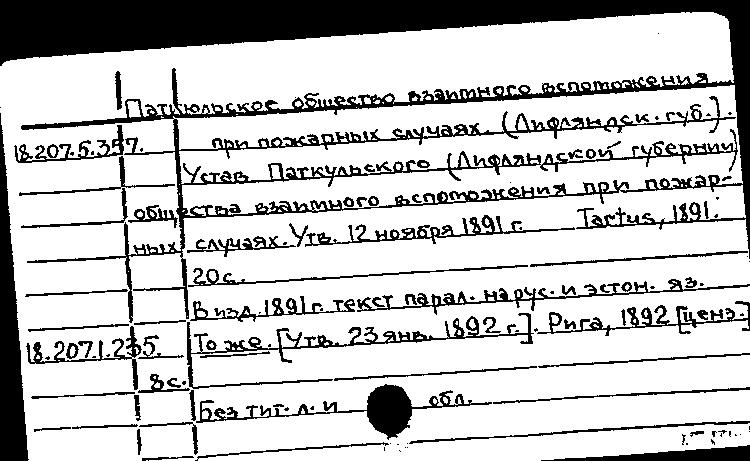 Паткюльское общество взаимного вспоможения
18.207.5.357. при пожарных случаях. (Лифляндск. губ.).
Устав Паткульского (Лифляндской губернии)
общества взаимного вспоможения при пожар-
ных случаях. Утв. 12 ноября 1891 г. Tartus, 1891.
20 с.
В изд. 1891 г. текст парал. на рус. и эстон. яз.
18.207.1.235. То же. [Утв. 23 янв. 1892 г.]. Рига, 1892 [ценз.]
8 с.
Без тит. л. и обл.